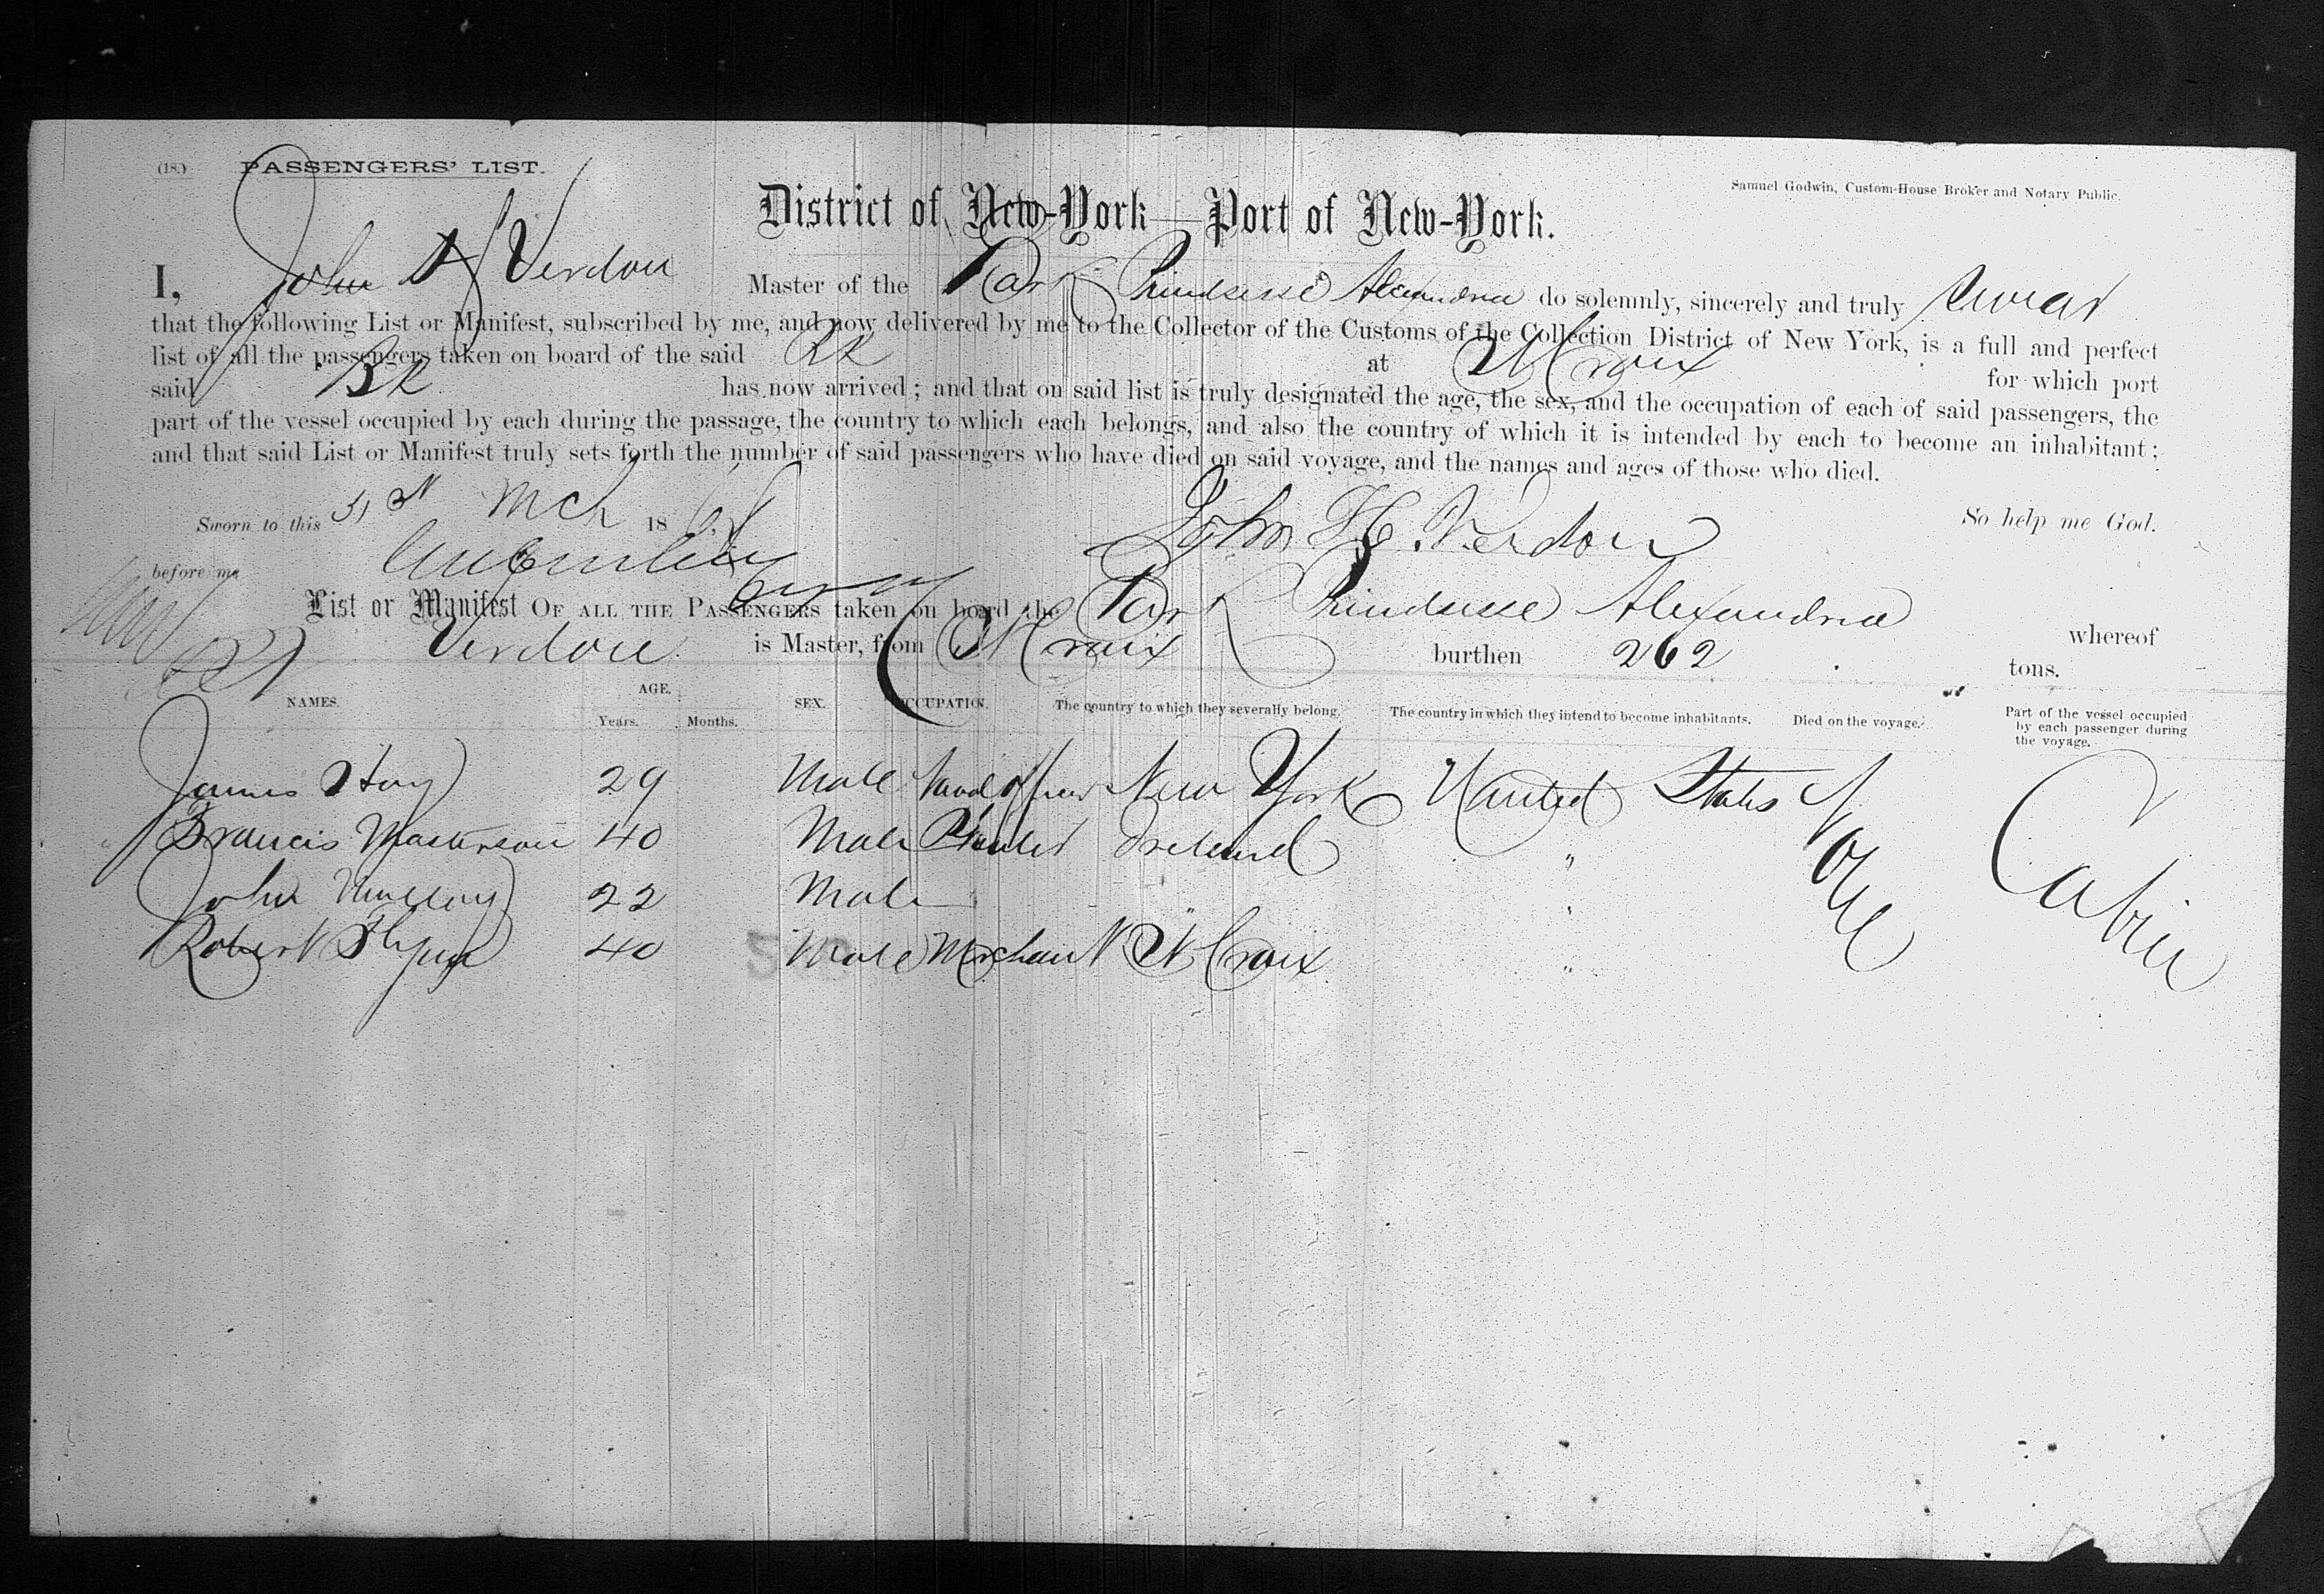 (18.) PASSENGERS' LIST.
Samuel Godwin, Custom-House Broker and Notary Public.
District of New-York—Port of New-York.
I, John H Verdon Master of the Bark Prindsesse Alexandria do solemnly, sincerely and truly swear
that the following List or Manifest, subscribed by me, and now delivered by me to the Collector of the Customs of the Collection District of New York, is a full and perfect
list of all the passengers taken on board of the said Bk at St Croix for which port
said Bk has now arrived; and that on said list is truly designated the age, the sex, and the occupation of each of said passengers, the
part of the vessel occupied by each during the passage, the country to which each belongs, and also the country of which it is intended by each to become an inhabitant;
and that said List or Manifest truly sets forth the number of said passengers who have died on said voyage, and the names and ages of those who died.
So help me God.
Sworn to this 31st Mch 18
John H. Verdon
before me
List or Manifest OF ALL THE PASSENGERS taken on board the Bark Prindsesse Alexandria whereof
Verdon is Master, from St Croix burthen 262 tons.
NAMES. AGE. Years. Months. SEX. OCCUPATION. The country to which they severally belong. The country in which they intend to become inhabitants. Died on the voyage. Part of the vessel occupied by each passenger during the voyage.
James Hoy 29 Male Naval Officer New York United States None Cabin
Francis Masterson 40 Male Planter Ireland "
John 22 Male " "
Robert Flynn 40 Male Merchant St Croix "